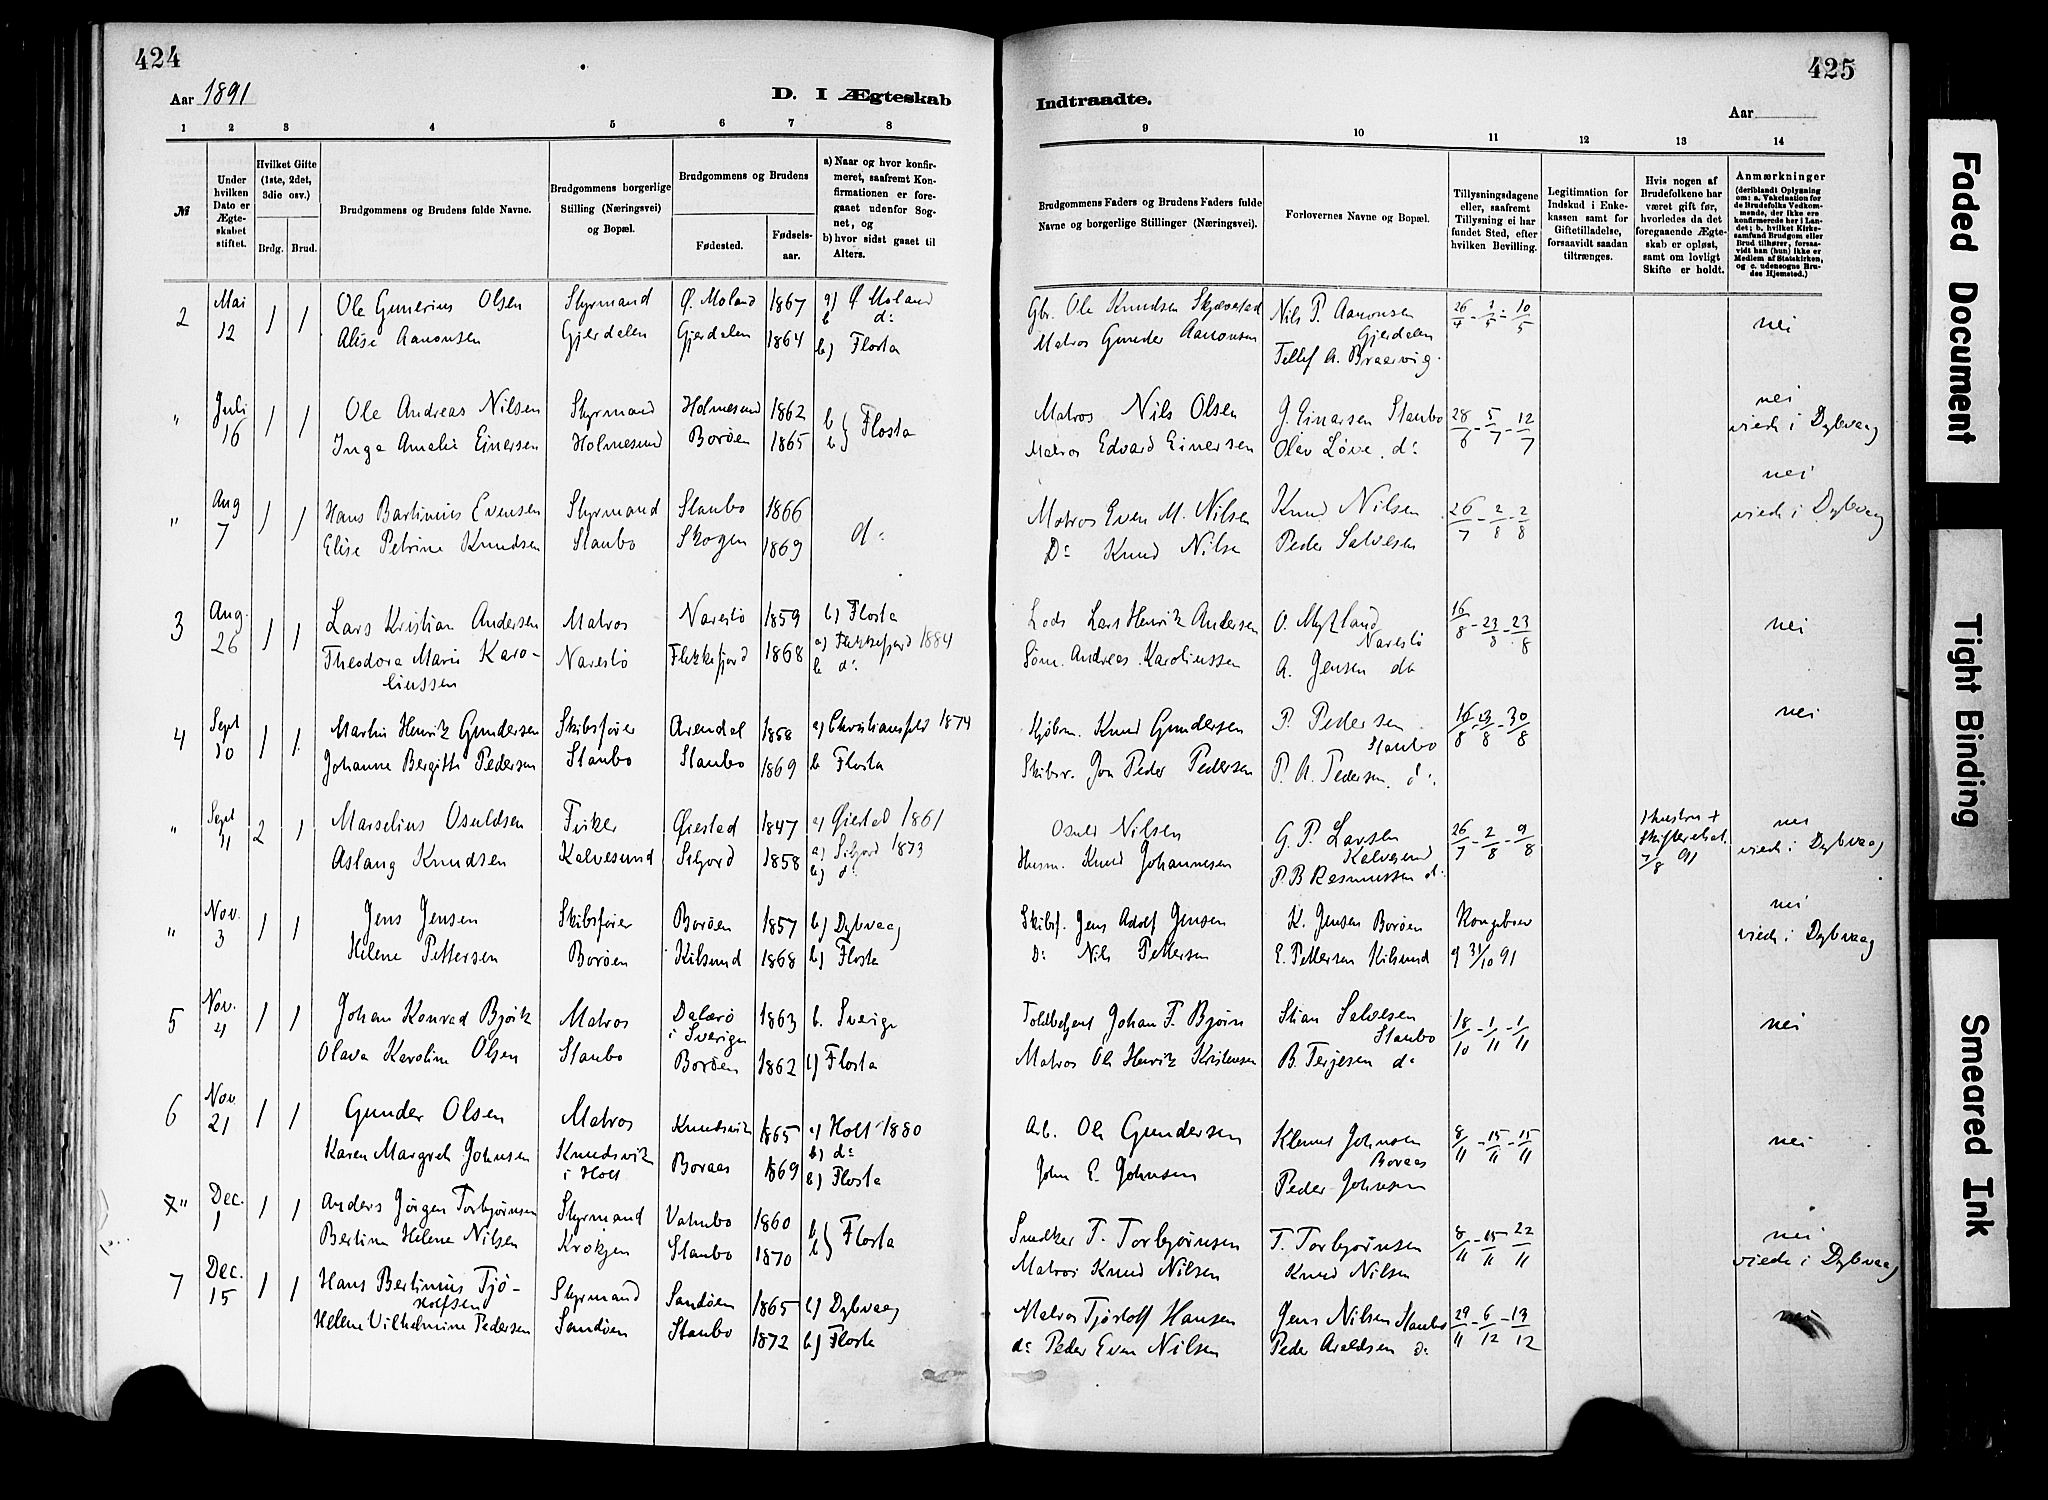 424
Aar 1891
D. I Ægteskab
1 2 3 4 5 6 7 8
№
Under hvilken Dato er Ægteskabet stiftet.
Hvilket Gifte (1ste, 2det, 3die osv.)
Brdg. Brud.
Brudgommens og Brudens fulde Navne.
Brudgommens borgerlige Stilling (Næringsvei) og Bopæl.
Brudgommens og Brudens
Fødested.
Fødselsaar.
a) Naar og hvor konfirmeret, saafremt Konfirmationen er foregaaet udenfor Sognet, og
b) hvor sidst gaaet til Alters.
2 Mai 12 1 1 Ole Gunerius Olsen Styrmand Ø. Moland 1867 a) Ø Moland b d:
Alise Aanonsen Gjerdalen Gjerdalen 1864 b) Flosta
" Juli 16 1 1 Ole Andreas Nilsen Styrmand Holmesund 1862 b
Inga Amalie Einersen Holmesund Borøen 1865 b) Flosta
" Aug 7 1 1 Hans Bartinius Evensen Styrmand Staubo 1866
Elise Petrine Knudsen Staubo Skogen 1869 d:
3 Aug. 26 1 1 Lars Kristian Andersen Matros Narestø 1859 b) Flosta
Theodora Marie Karoliussen Narestø Flekkefjord 1868 a) Flekkefjord 1884 b d:
4 Sept 10 1 1 Martin Henrik Gundersen Skibsfører Arendal 1858 a) Christiansfeld 1874
Johanne Bergitte Pedersen Staubo Staubo 1869 b Flosta
" Sept 11 2 1 Marselius Osuldsen Fisker Øiestad 1847 a) Øiestad 1861
Aslaug Knudsen Kalvesund Siljord 1858 a) Siljord 1873 b) d:
" Nov. 3 1 1 Jens Jensen Skibsfører Borøen 1857 b) Dybvaag
Helene Pettersen Borøen Kilsund 1868 b) Flosta
5 Nov. 4 1 1 Johan Konrad Bjørk Matros Dalarø i Sverige 1863 b. Sverige
Olava Karoline Olsen Staubo Borøen 1862 b) Flosta
6 Nov. 21 1 1 Gunder Olsen Matros Knudsvik 1865 a) Holt 1880 b) d:
Karen Margreth Johnsen Knudsvik i Holt Boraas 1869 b) Flosta
" Dec. 1 1 1 Anders Jørgen Torbjørnsen Styrmand Vatnebo 1860 b
Bertine Helene Nilsen Krokgen Staubo 1870 b} Flosta
7 Dec. 15 1 1 Hans Bertinius Tjøstolfsen Styrmand Sandøen 1865 b) Dybvaag
Helene Vilhelmine Pedersen Sandøen Staubo 1872 b) Flosta
425
Indtraadte.
Aar
9 10 11 12 13 14
Brudgommens Faders og Brudens Faders fulde Navne og borgerlige Stillinger (Næringsvei).
Forlovernes Navne og Bopæl.
Tillysningsdagene eller, saafremt Tillysning ei har fundet Sted, efter hvilken Bevilling.
Legitimation for Indskud i Enkekassen samt for Giftetilladelse, forsaavidt saadan tiltrænges.
Hvis nogen af Brudefolkene har været gift før, hvorledes da det foregaaende Ægteskab er opløst, samt om lovligt Skifte er holdt.
Anmærkninger (deriblandt Oplysning om: a. Vakcination for de Brudefolks Vedkommende, der ikke ere konfirmerede her i Landet; b. hvilket Kirkesamfund Brudgom eller Brud tilhører, forsaavidt han (hun) ikke er Medlem af Statskirken, og c. udensogns Brudes Hjemsted.)
Gbr. Ole Knudsen Skjævestad Nils P. Aanonsen Gjerdalen 26/4 - 3/5 - 10/5 nei
Matros Gunder Aanonsen Tellef A. Braarvig.
Matros Nils Olsen G. Einarsen Staubo 28/6 - 5/7 - 12/7 nei
Matros Edvard Einersen Olav Løve, d: viede i Dybvaag
Matros Even M. Nilsen Knud Nilsen 26/7 - 2/8 - 2/8 nei
D: Knud Nilsen Peder Salvesen viede i Dybvaag
Lods Lars Henrik Andersen O. Mykland Narestø 16/8 - 23/8 - 23/8 nei
Søm. Andreas Karoliussen A. Jensen do
Kjøbm. Knud Gundersen P. Pedersen Staubo 16/8 - 23/8 - 30/8 nei
Skibsr. Jon Peder Pedersen P. A. Pedersen, d:
Osuld Nilsen G. P. Larsen Kalvesund 26/7 - 2/8 - 9/8 Hustru + Skifteattest 7/8 91 nei
Husm. Knud Johannesen P. B Rasmussen d: viede i Dybvaag
Skibsf. Jens Adolf Jensen K. Jensen Borøen Kongebrev nei
D: Nils Pettersen E. Pettersen Kilsund 9 31/10 91 viede i Dybvaag
Toldbetjent Johan F. Bjørk Stian Salvesen Staubo 18/10 - 1/11 - 1/11 nei
Matros Ole Henrik Kristensen B. Terjesen d:
Arb. Ole Gundersen Klemet Johnsen Boraas 8/11 - 15/11 - 15/11 nei
John E. Johnsen Peder Johnsen
Snedker T. Torbjørnsen T. Torbjørnsen 8/11 - 15/11 - 22/11 nei
Matros Knud Nilsen Knud Nilsen viede i Dybvaag
Matros Tjøstolf Hansen Jens Nilsen Staubo 29/11 - 6/12 - 13/12 nei
d: Peder Even Nilsen Peder Areldsen d:
Faded Document
Tight Binding
Smeared Ink